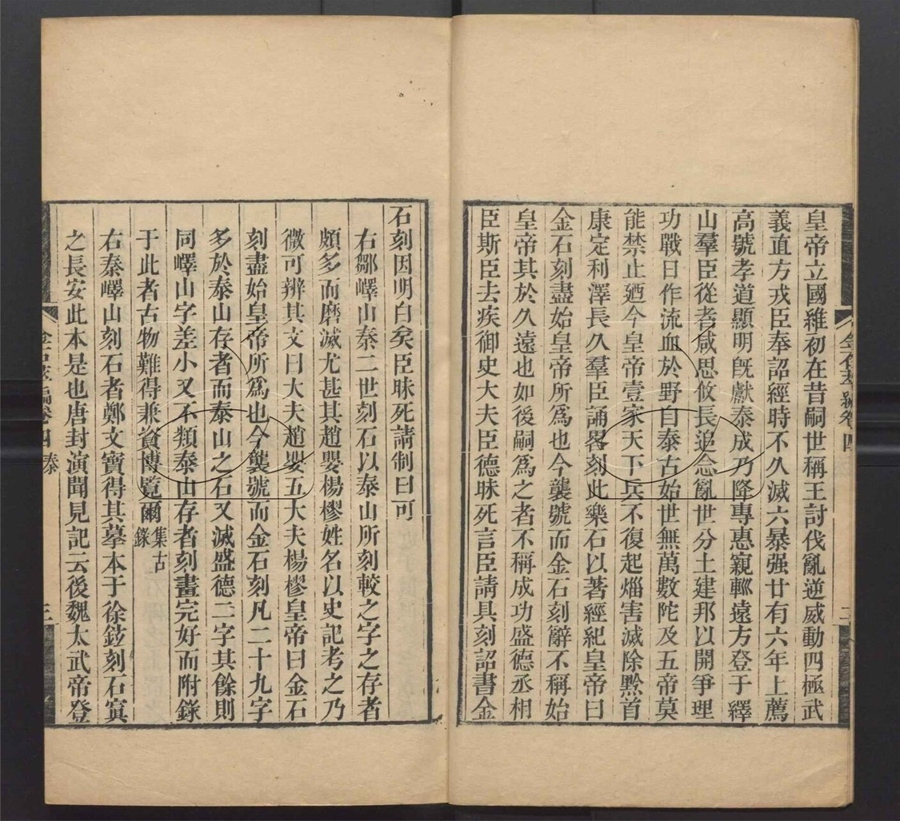 皇帝立國維初在昔嗣世稱王討伐亂逆威動四極武
義直方戎臣奉詔經時不久滅六暴强廿有六年上薦
高號孝道顯明旣獻泰成乃降專惠寴輙遠方登于繹
山羣臣從者咸思攸長追念亂世分土建邦以開爭理
功戰日作流血於野自泰古始世無萬數陀及五帝莫
能禁止廼今皇帝壹家天下兵不復起烖害滅除黔首
康定利澤長久羣臣誦畧刻此樂石以著經紀皇帝曰
金石刻盡始皇帝所爲也今襲號而金石刻辭不稱始
皇帝其於久遠也如後嗣爲之者不稱成功盛德丞相
臣斯臣去疾御史大夫臣德昧死言臣請具刻詔書金
金石萃編卷四
二
石刻因明白矣臣昧死請制曰可
右鄒嶧山秦二世刻石以泰山所刻較之字之存者
頗多而磨滅尤甚其趙嬰楊樛姓名以史記考之乃
微可辨其文曰大夫趙嬰五大夫楊樛皇帝曰金石
刻盡始皇帝所爲也今襲號而金石刻凡二十九字
多於泰山存者而泰山之石又滅盛德二字其餘則
同嶧山字差小又不類泰山存者刻畫完好而附錄
于此者古物難得兼資博覽爾集古錄
右秦嶧山刻石者鄭文寶得其摹本于徐鉉刻石寘
之長安此本是也唐封演聞見記云後魏太武帝登
金石萃編卷四 秦
三